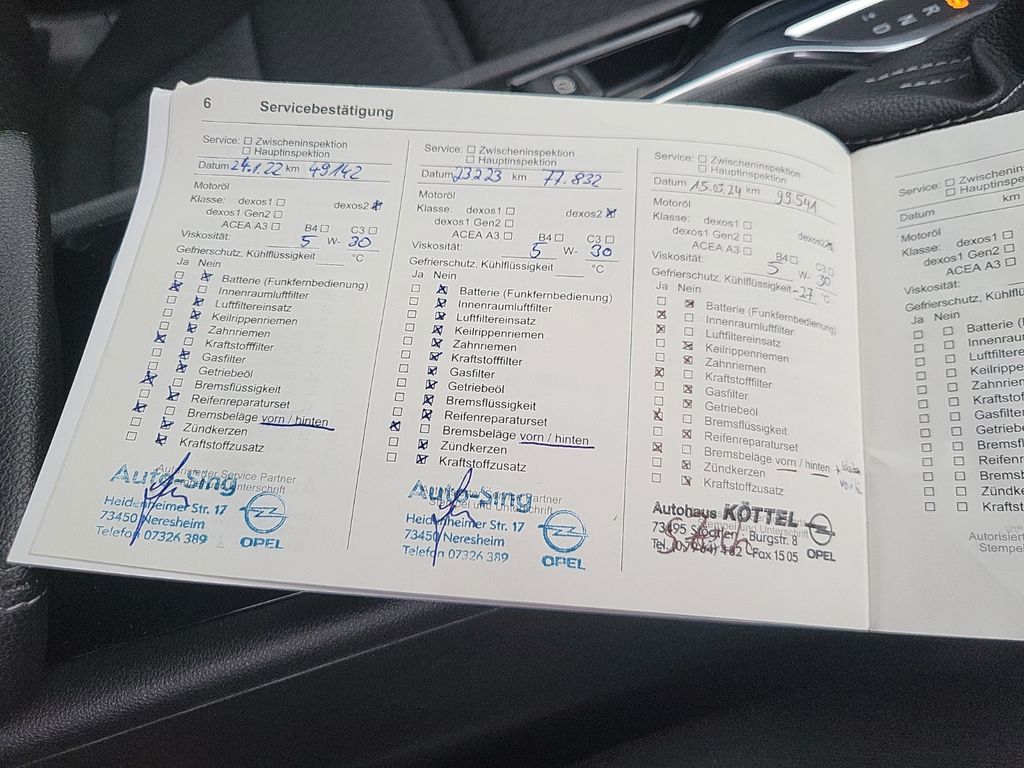 6 Servicebestätigung
Service: ☐ Zwischeninspektion
☐ Hauptinspektion
Datum 24.1.22 km 49142
Motoröl
Klasse: dexos1 ☐ dexos2 ☒
dexos1 Gen2 ☐
ACEA A3 ☐ B4 ☐ C3 ☐
Viskosität: 5 W- 30
Gefrierschutz, Kühlflüssigkeit ____ °C
Ja Nein
☐ ☒ Batterie (Funkfernbedienung)
☒ ☐ Innenraumluftfilter
☐ ☒ Luftfiltereinsatz
☐ ☒ Keilrippenriemen
☐ ☒ Zahnriemen
☒ ☐ Kraftstofffilter
☐ ☒ Gasfilter
☐ ☒ Getriebeöl
☒ ☐ Bremsflüssigkeit
☐ ☒ Reifenreparaturset
☒ ☐ Bremsbeläge vorn / hinten
☐ ☒ Zündkerzen
☐ ☒ Kraftstoffzusatz
Autorisierter Service Partner
Auto-Sing
Heidenheimer Str. 17
73450 Neresheim
Telefon 07326 389
OPEL
Service: ☐ Zwischeninspektion
☐ Hauptinspektion
Datum 23.2.23 km 77.832
Motoröl
Klasse: dexos1 ☐ dexos2 ☒
dexos1 Gen2 ☐
ACEA A3 ☐ B4 ☐ C3 ☐
Viskosität: 5 W- 30
Gefrierschutz, Kühlflüssigkeit ____ °C
Ja Nein
☐ ☒ Batterie (Funkfernbedienung)
☐ ☒ Innenraumluftfilter
☐ ☒ Luftfiltereinsatz
☐ ☒ Keilrippenriemen
☐ ☒ Zahnriemen
☐ ☒ Kraftstofffilter
☐ ☒ Gasfilter
☐ ☒ Getriebeöl
☐ ☒ Bremsflüssigkeit
☐ ☒ Reifenreparaturset
☒ ☐ Bremsbeläge vorn / hinten
☐ ☒ Zündkerzen
☐ ☒ Kraftstoffzusatz
Auto-Sing
Stempel und Unterschrift
Heidenheimer Str. 17
73450 Neresheim
Telefon 07326 389
OPEL
Service: ☐ Zwischeninspektion
☐ Hauptinspektion
Datum 15.03.24 km 99.541
Motoröl
Klasse: dexos1 ☐ dexos2 ☒
dexos1 Gen2 ☐
ACEA A3 ☐ B4 ☐ C3 ☐
Viskosität: 5 W- 30
Gefrierschutz, Kühlflüssigkeit -27 °C
Ja Nein
☐ ☒ Batterie (Funkfernbedienung)
☒ ☐ Innenraumluftfilter
☒ ☐ Luftfiltereinsatz
☐ ☒ Keilrippenriemen
☐ ☒ Zahnriemen
☒ ☐ Kraftstofffilter
☐ ☒ Gasfilter
☐ ☒ Getriebeöl
☒ ☐ Bremsflüssigkeit
☐ ☒ Reifenreparaturset
☒ ☐ Bremsbeläge vorn / hinten
☐ ☒ Zündkerzen
☐ ☒ Kraftstoffzusatz
Autohaus KÖTTEL
Stempel und Unterschrift
Burgstr. 8
Fax 15 05
OPEL
Service: ☐ Zwischeninspektion
☐ Hauptinspektion
Datum km
Motoröl
Klasse: dexos1 ☐
dexos1 Gen2 ☐
ACEA A3 ☐
Viskosität:
Gefrierschutz, Kühlflü
Ja Nein
☐ ☐ Batterie (
☐ ☐ Innenraum
☐ ☐ Luftfiltere
☐ ☐ Keilrippe
☐ ☐ Zahnrie
☐ ☐ Kraftsto
☐ ☐ Gasfilter
☐ ☐ Getriebe
☐ ☐ Bremsfl
☐ ☐ Reifenre
☐ ☐ Bremsb
☐ ☐ Zündke
☐ ☐ Kraftst
Autorisier
Stempe
R
N
D